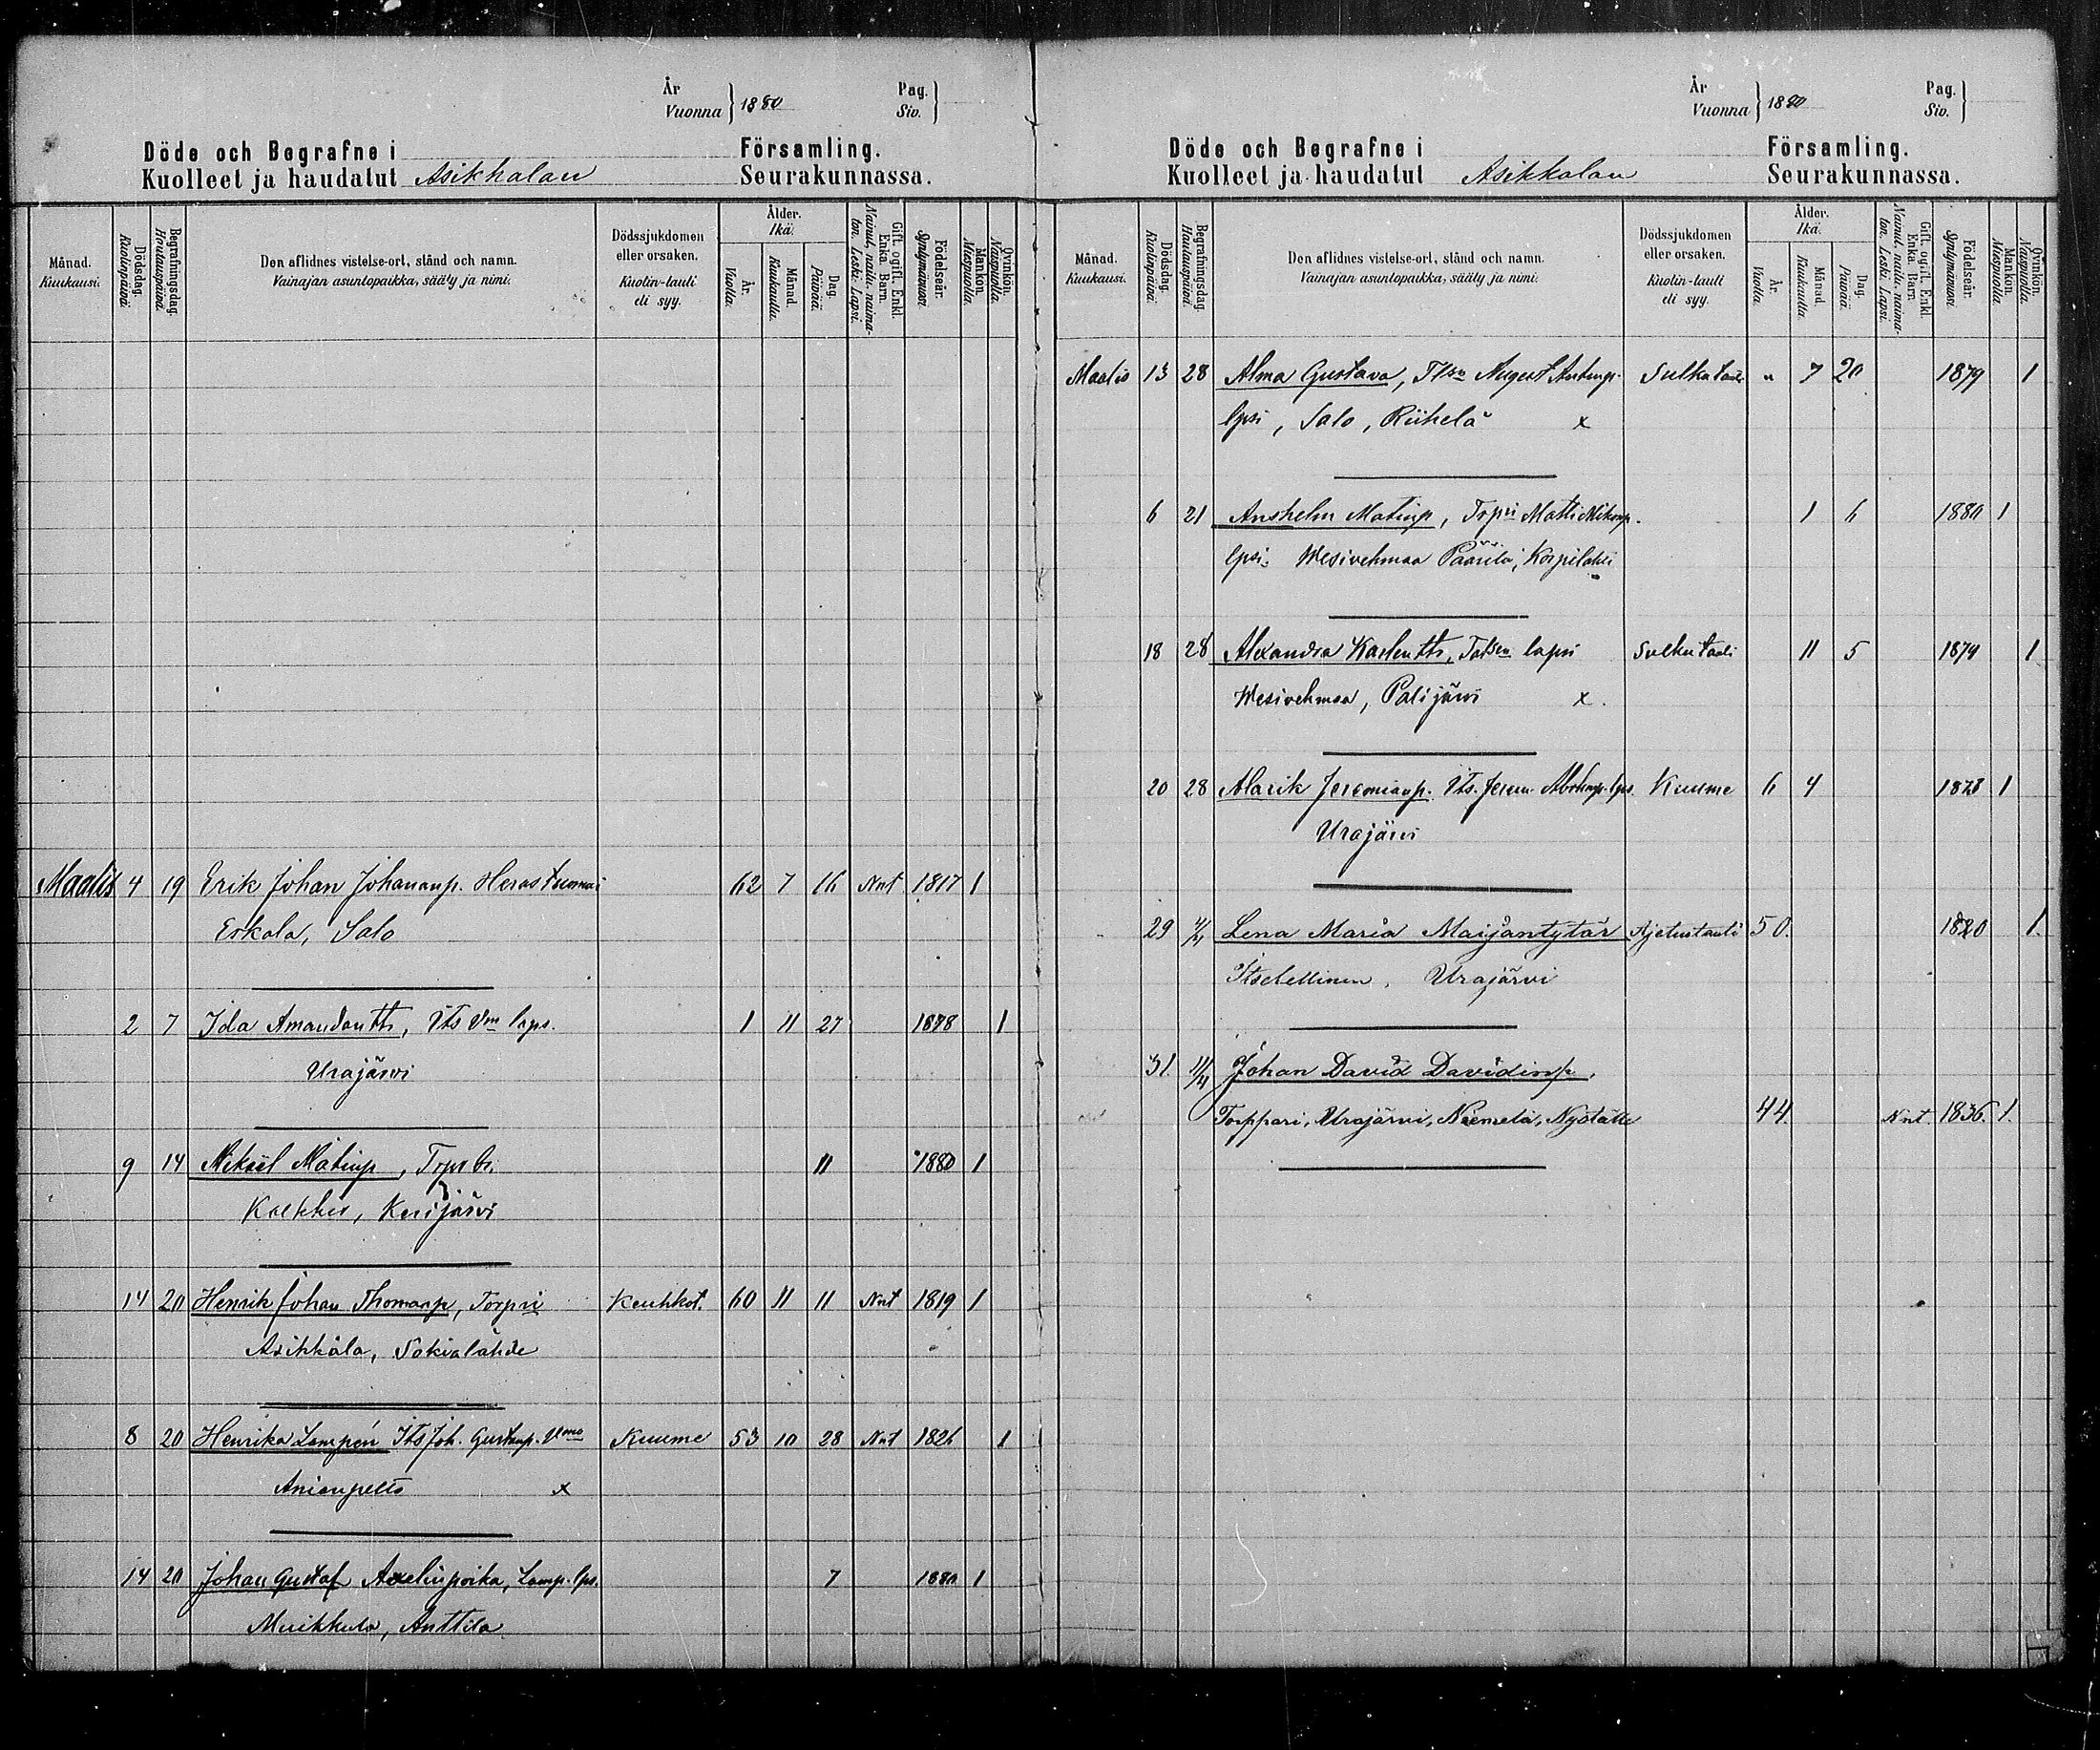 År
Vuonna } 1880
Pag.
Siv. }
Döde och Begrafne i Församling.
Kuolleet ja haudatut Asikkalan Seurakunnassa.
Månad. Kuukausi.
Dödsdag. Kuolinpäivä.
Begrafningsdag. Hautauspäivä.
Den aflidnes vistelse-ort, stånd och namn.
Vainajan asuntopaikka, sääty ja nimi.
Dödssjukdomen eller orsaken.
Kuolin-tauti eli syy.
Ålder. Ikä.
År. Vuotta.
Månad. Kuukautta.
Dag. Päivää.
Gift, ogift. Enkl. Enka. Barn.
Nainut, naitu, naimaton. Leski. Lapsi.
Födelseår. Syntymävuosi.
Mankön. Miespuolia.
Qvinkön. Naispuolia.
Maalis 4 19 Erik Johan Johananp. Herastuomari 62 7 16 Nnt 1817 1
Erkola, Salo
2 7 Ida Amandantr, Its Vm laps. 1 11 27 1878 1
Urajärvi
9 14 Mikael Matinp, 11 1880 1
Kalkkis,
14 20 Henrik Johan Thomanp, Torpri Keuhkot. 60 11 11 Nnt 1819 1
Asikkala,
8 20 Henrika Lampén Its Joh. Gustavp. Vmo Kuume 53 10 28 Nnt 1826 1
Anianpelto x
14 20 Johan Gustaf Axelinpoika, Lamp. lps. 7 1880 1
Muikkula, Anttila
År
Vuonna } 1880
Pag.
Siv. }
Döde och Begrafne i Församling.
Kuolleet ja haudatut Asikkalan Seurakunnassa.
Månad. Kuukausi.
Dödsdag. Kuolinpäivä.
Begrafningsdag. Hautauspäivä.
Den aflidnes vistelse-ort, stånd och namn.
Vainajan asuntopaikka, sääty ja nimi.
Dödssjukdomen eller orsaken.
Kuolin-tauti eli syy.
Ålder. Ikä.
År. Vuotta.
Månad. Kuukautta.
Dag. Päivää.
Gift, ogift. Enkl. Enka. Barn.
Nainut, naitu, naimaton. Leski. Lapsi.
Födelseår. Syntymävuosi.
Mankön. Miespuolia.
Qvinkön. Naispuolia.
Maalis 13 28 Alma Gustava, August Antinp. Sulkutauti " 7 20 1879 1
lpsi, Salo, Riihelä x
6 21 Anshelm Matinp, Torpri Matti Mikonp. 1 6 1880 1
lpsi. Wesivehmaa Paavila, Korpilahti
18 28 Alexandra Kaarlentr, lapsi Sulkutauti 11 5 1879 1
Wesivehmaa, Palijärvi x.
20 28 Alarik Jeremianp. Its. Jerem. Abrhmp. lps. Kuume 6 4 1
Urajärvi
29 4/4 Lena Maria Maijantytär Ajetustauti 50. 1820 1.
Itsellinen, Urajärvi
31. 11/4 Johan David Davidinp,
Torppari, Urajärvi, Niemelä, 44. Nnt. 1836. 1.